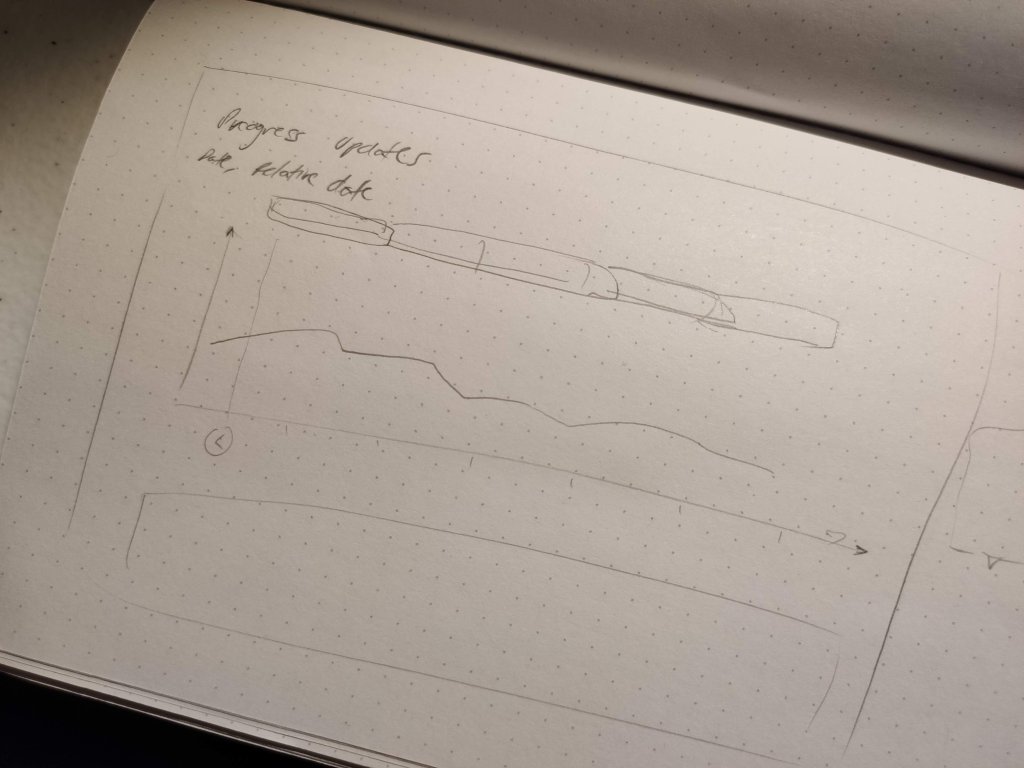 Progress updates
Date, relative date
<